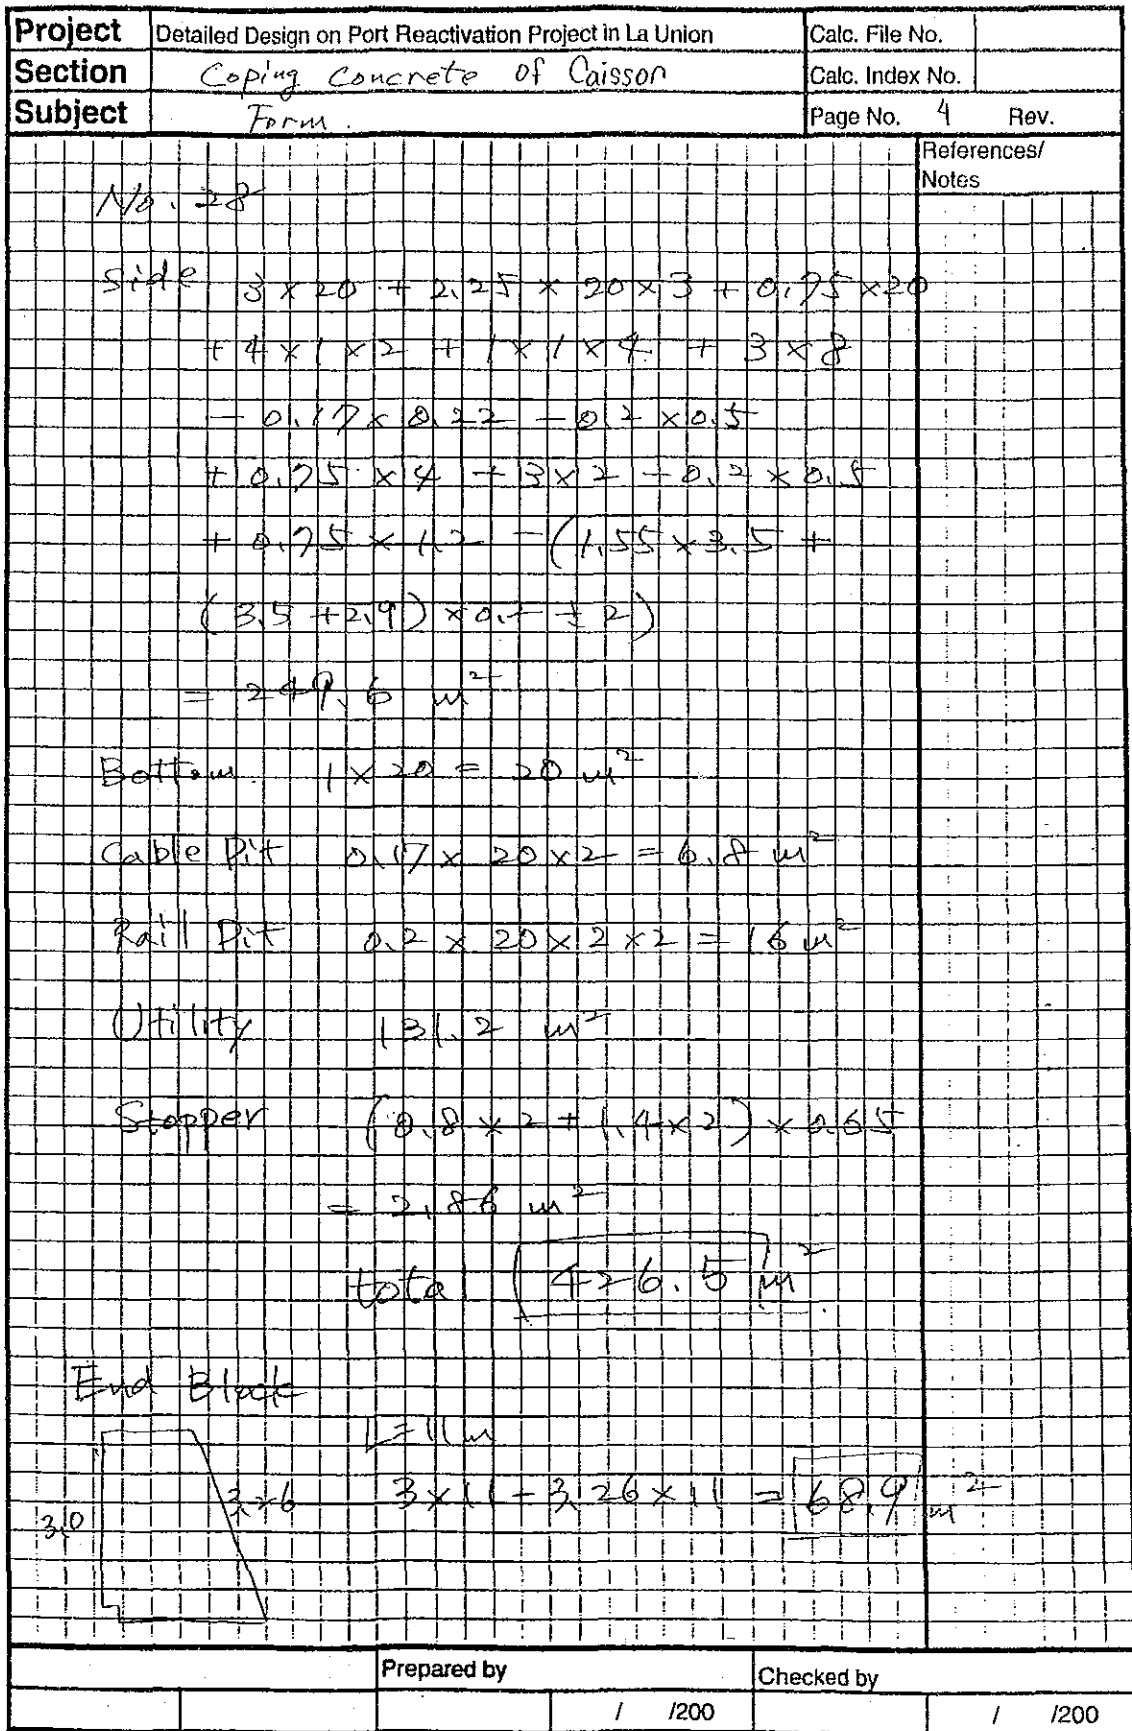 Project Detailed Design on Port Reactivation Project in La Union Calc. File No.
Section Coping Concrete of Caisson Calc. Index No.
Subject Form. Page No. 4 Rev.
References/
Notes
No. 28
Side 3 × 20 + 2.25 × 20 × 3 + 0.75 × 20
+ 4 × 1 × 2 + 1 × 1 × 4 + 3 × 8
- 0.17 × 0.22 - 0.2 × 0.5
+ 0.75 × 4 + 3 × 2 - 0.2 × 0.5
+ 0.75 × 1.2 - (1.55 × 3.5 +
(3.5 + 2.9) × 0. ÷ 2)
= 249.6 m²
Bottom. 1 × 20 = 20 m²
Cable Pit 0.17 × 20 × 2 = 6.8 m²
Rail Pit 0.2 × 20 × 2 × 2 = 16 m²
Utility 131.2 m²
Stopper (0.8 × 2 + 1.4 × 2) × 0.65
= 2.86 m²
total 426.5 m²
End Block
L = 11 m
3.26 3 × 11 - 3.26 × 11 = 68.9 m²
3.0
Prepared by Checked by
/ /200 / /200